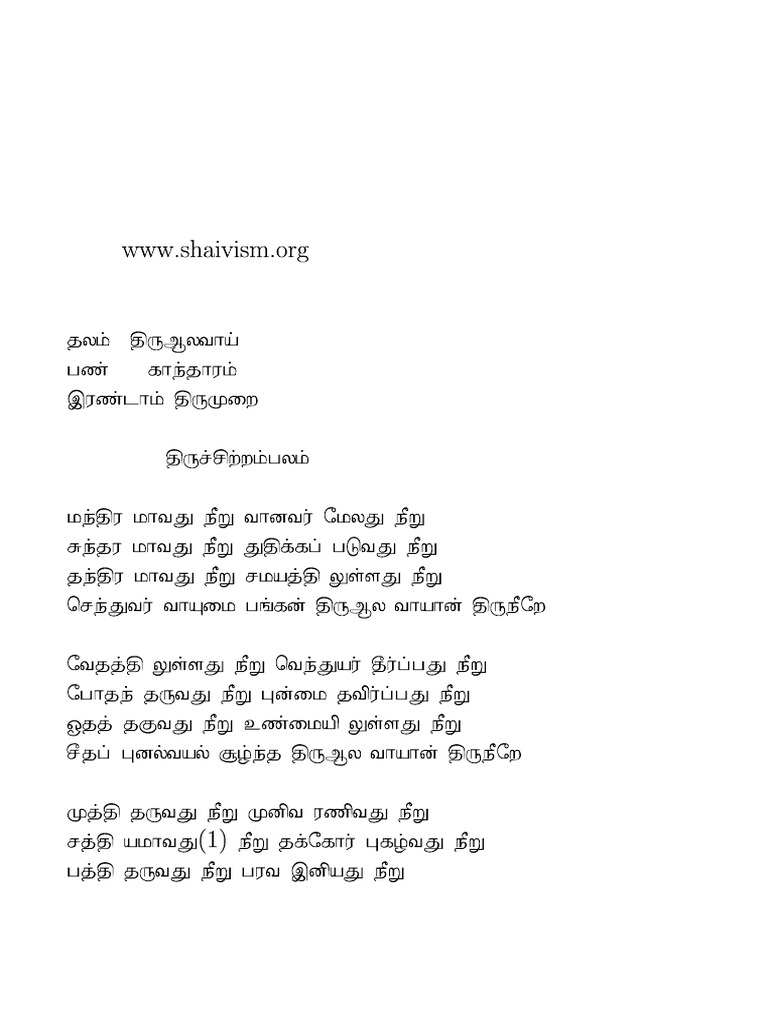 www.shaivism.org
தலம் திருஆலவாய்
பண் காந்தாரம்
இரண்டாம் திருமுறை
திருச்சிற்றம்பலம்
மந்திர மாவது நீறு வானவர் மேலது நீறு
சுந்தர மாவது நீறு துதிக்கப் படுவது நீறு
தந்திர மாவது நீறு சமயத்தி லுள்ளது நீறு
செந்துவர் வாயுமை பங்கன் திருஆல வாயான் திருநீறே
வேதத்தி லுள்ளது நீறு வெந்துயர் தீர்ப்பது நீறு
போதந் தருவது நீறு புன்மை தவிர்ப்பது நீறு
ஓதத் தகுவது நீறு உண்மையி லுள்ளது நீறு
சீதப் புனல்வயல் சூழ்ந்த திருஆல வாயான் திருநீறே
முத்தி தருவது நீறு முனிவ ரணிவது நீறு
சத்தி யமாவது(1) நீறு தக்கோர் புகழ்வது நீறு
பத்தி தருவது நீறு பரவ இனியது நீறு